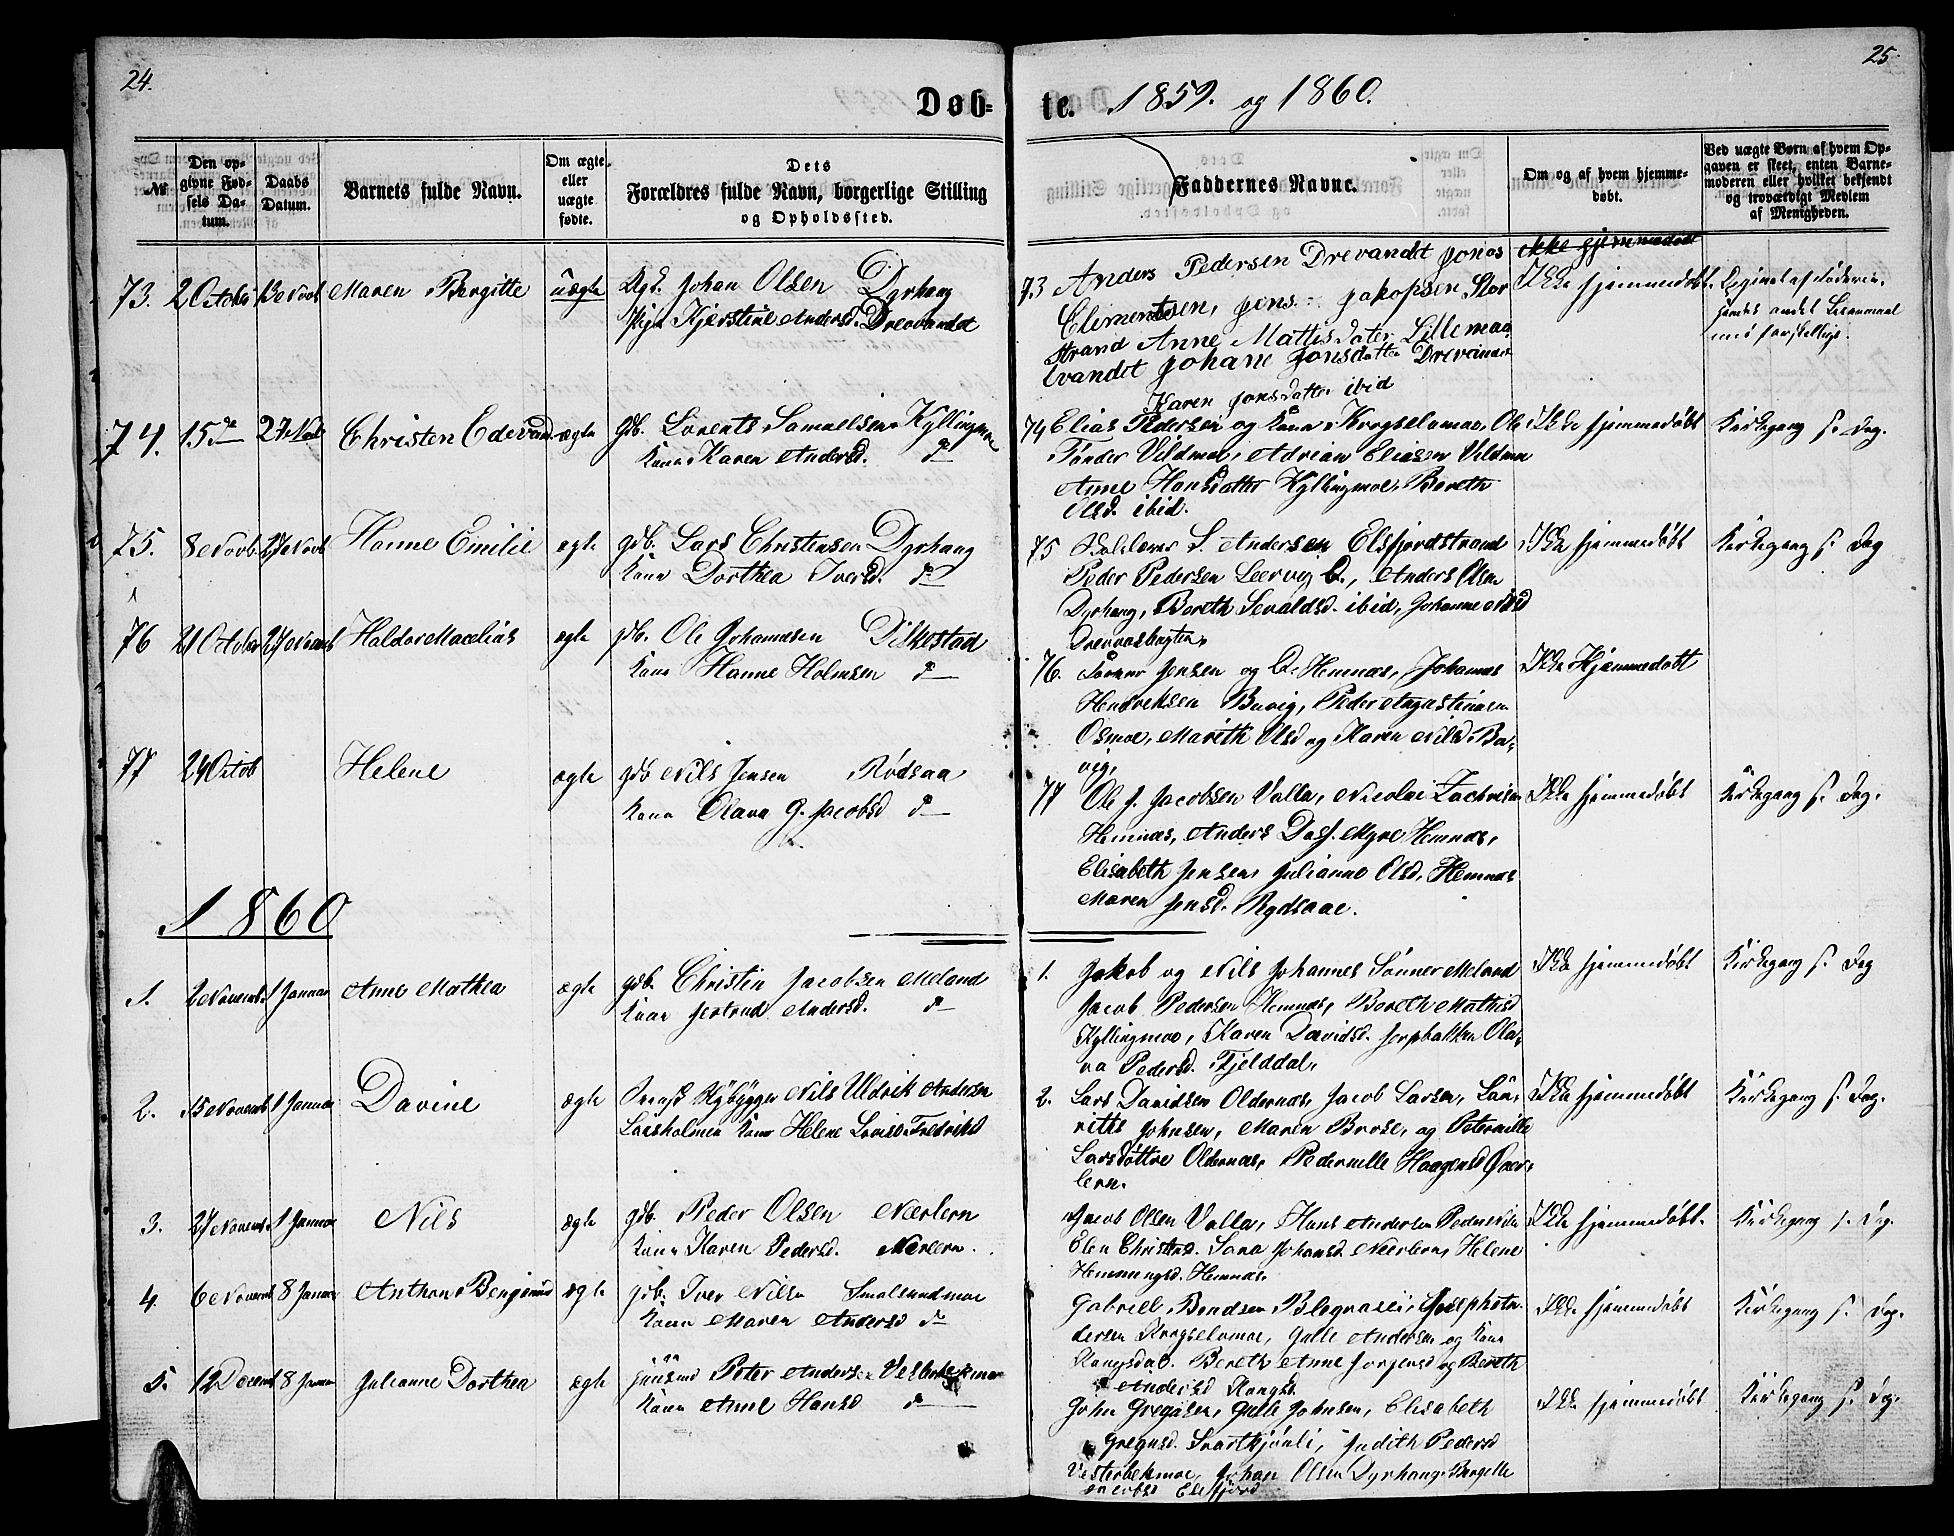 24.
25.
Døb-
te. 1859. og 1860.
№
Den op-
givne Fød-
sels Da-
tum.
Daabs
Datum.
Barnets fulde Navn.
Om ægte
eller
uægte
fødte.
Dets
Forældres fulde Navn, borgerlige Stilling
og Opholdssted.
Faddernes Navne.
Om og af hvem hjemme-
døbt.
Ved uægte Børn af hvem Op-
gaven er skeet, enten Barne-
moderen eller hvilket bekjendt
og troværdigt Medlem
af Menigheden.
73. 2 October 13 Novb Maren Bergitte uægte Johan Olsen Dyrhaug
pige Kjerstine Andersd. Drevandet
73 Anders Pedersen Drevandet Jonas
Clementsen, Jens Jakopsen Stor
strand Anne Mattisdater Lillemaa
vandet Johane Jonsdatter Drevandet
Karen Jonsdatter ibid
ikke hjemmedøbt
Ikke hjemmedøbt.
74. 15 27 Novb Christen Edevard ægte gdb. Lorents Samuelsen Kyllingmoe
Kone Karen Andersd. d
74 Elias Pedersen og Kone Krogselvmoe, Ole
Tønder Vildmoe, Adrian Eliasen Vildmoe
Anne Hansdatter Kyllingmoe, Bereth
Olsd. ibid.
Ikke hjemmedøbt Kirkegang s. Dag.
75. 8 Novb. 27 Novb Hanne Emilie ægte gdb. Lars Christensen Dyrhaug
Kone Dorthea Iversd. d
75 S. Andersen Elsfjordstrand
Peder Pedersen Leervig, Anders Olsen
Dyrhaug, Bereth Sevaldsd. ibid, Johanne Nilsd
Ikke hjemmedøbt Kirkegang s. Dag
76 21 October 27 Novemb Haldor Maselius ægte gdb. Ole Johannesen Dilkestad
Kone Hanne Holmsen d
76. Jensen og Hemnæs, Johannes
Hendreksen Buvig, Peder Augustinusen
Osmoe, Mareth Olsd og Karen Nilsd. Bu-
vig,
Ikke Hjemmedøbt
77 24 Octob Helene ægte gdb Nils Jensen Rødsaa
Kone Olava G. Jacobsd d
77 Ole J. Jacobsen Valla, Nicolai Zachrisen
Hemnæs, Anders Dass. Myre Hemnæs,
Elisabeth Jensen, Julianne Olsd, Hemnæs
Maren Jensd. Rydsaae.
Ikke hjemmedøbt Kirkegang s. Dag.
1860
1. 2 Novemb. 1 Januar Anne Mathea ægte gdb. Christin Jacobsen Meland
Kone Jertrud Andersd. d
1. Jakob og Nils Johannes Sønner Meland
Jacob Pedersen Hemnæs, Bereth Mathisd
Kyllingmoe, Karen Davidsd. Jorpbakken Ola-
va Pedersd. Fjelddal.
Ikke hjemmedøbt Kirkegang s. Dag
2. 15 Novemb 1 Januar Davine ægte Nybygger Nils Uldrik Andersen
Laxholmen Kone Helene Lovise Fredriksd
2. Lars Davidsen Oldernæs, Jacob Larsen, Lau-
ritts Johnsen, Maren Brose, og Peternille
Larsdøttre Oldernæs, Pedernille Haagensd Over-
leren.
Ikke hjemmedøbt Kirkegang s. Dag.
3. 27 Novemb. 1 Januar Nils ægte gdb. Peder Olsen Nerlern
Kone Karen Pedersd. Nerlern.
Jacob Olsen Valla, Hans Andersen
Elen Christsd. Sara Johansd. Nerlern, Helene
Hemmingsd. Hemnæs.
Ikke hjemmedøbt. Kirkegang s. Dag.
4. 6 Novemb 8 Januar Anthon Benjamin ægte gdb. Iver Nilsen Smalsundmoe
Kone Maren Andersd d
Gabriel Bendsen,
dersen Krogselvmoe, Julle Andersen og Kone
Rangsdal. Bereth Anne Jorgensd og Bereth
Andersd Rangsd.
Ikke hjemmedøbt Kirkegang s. Dag.
5. 12 Decemb 8 Januar Julianne Dorthea ægte Peter Andersen Vesterbekmoe
Kone Anne Hansd d
John Gregusen, Julle Johnsen, Elisabeth
Gregusd. Svartkjønli, Judith Pedersd
Vesterbekmoe, Johan Olsen Dyrhaug,
Jacobsd Elsfjord
Ikke hjemmedøbt Kirkegang s. Dag.